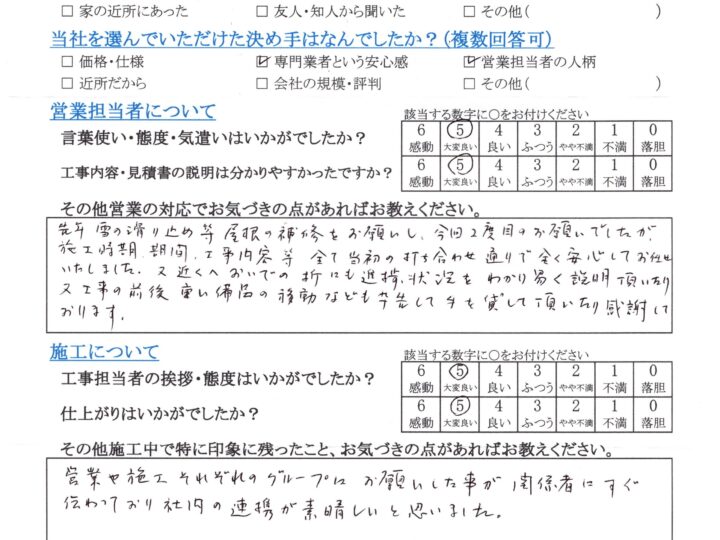 □ 家の近所にあった □ 友人・知人から聞いた □ その他( )
当社を選んでいただけた決め手はなんでしたか？(複数回答可)
□ 価格・仕様 ☑ 専門業者という安心感 ☑ 営業担当者の人柄
□ 近所だから □ 会社の規模・評判 □ その他( )
営業担当者について 該当する数字に○をお付けください
言葉使い・態度・気遣いはいかがでしたか？ 6 感動 5 大変良い 4 良い 3 ふつう 2 やや不満 1 不満 0 落胆
工事内容・見積書の説明は分かりやすかったですか？ 6 感動 5 大変良い 4 良い 3 ふつう 2 やや不満 1 不満 0 落胆
その他営業の対応でお気づきの点があればお教えください。
先年 雪の滑り止め等 屋根の補修をお願いし、今回2度目のお願いでしたが
施工時期、期間、工事内容等 全て当初の打ち合わせ通りで全く安心してお任せ
いたしました。又近くへおいでの折にも進捗状況をわかり易く説明頂いたり
又工事の前後 重い備品の移動なども 率先して手を貸して頂いたり感謝して
おります。
施工について 該当する数字に○をお付けください
工事担当者の挨拶・態度はいかがでしたか？ 6 感動 5 大変良い 4 良い 3 ふつう 2 やや不満 1 不満 0 落胆
仕上がりはいかがでしたか？ 6 感動 5 大変良い 4 良い 3 ふつう 2 やや不満 1 不満 0 落胆
その他施工中で特に印象に残ったこと、お気づきの点があればお教えください。
営業や施工 それぞれのグループに お願いした事が 関係者にすぐ
伝わっており 社内の連携が素晴しいと思いました。